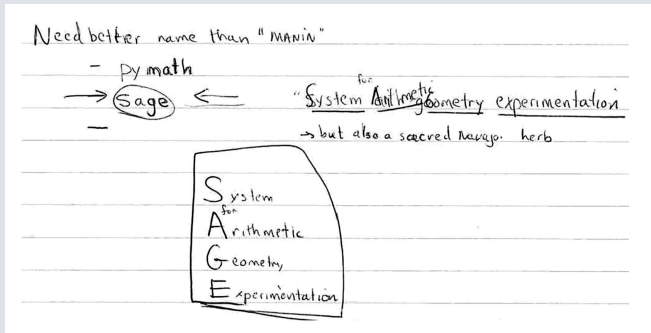 Need better name than "MANIN"
- pymath
→ Sage ←
"System for Arithmetic geometry experimentation
→ but also a sacred Navajo. herb
System
for
Arithmetic
Geometry
Experimentation